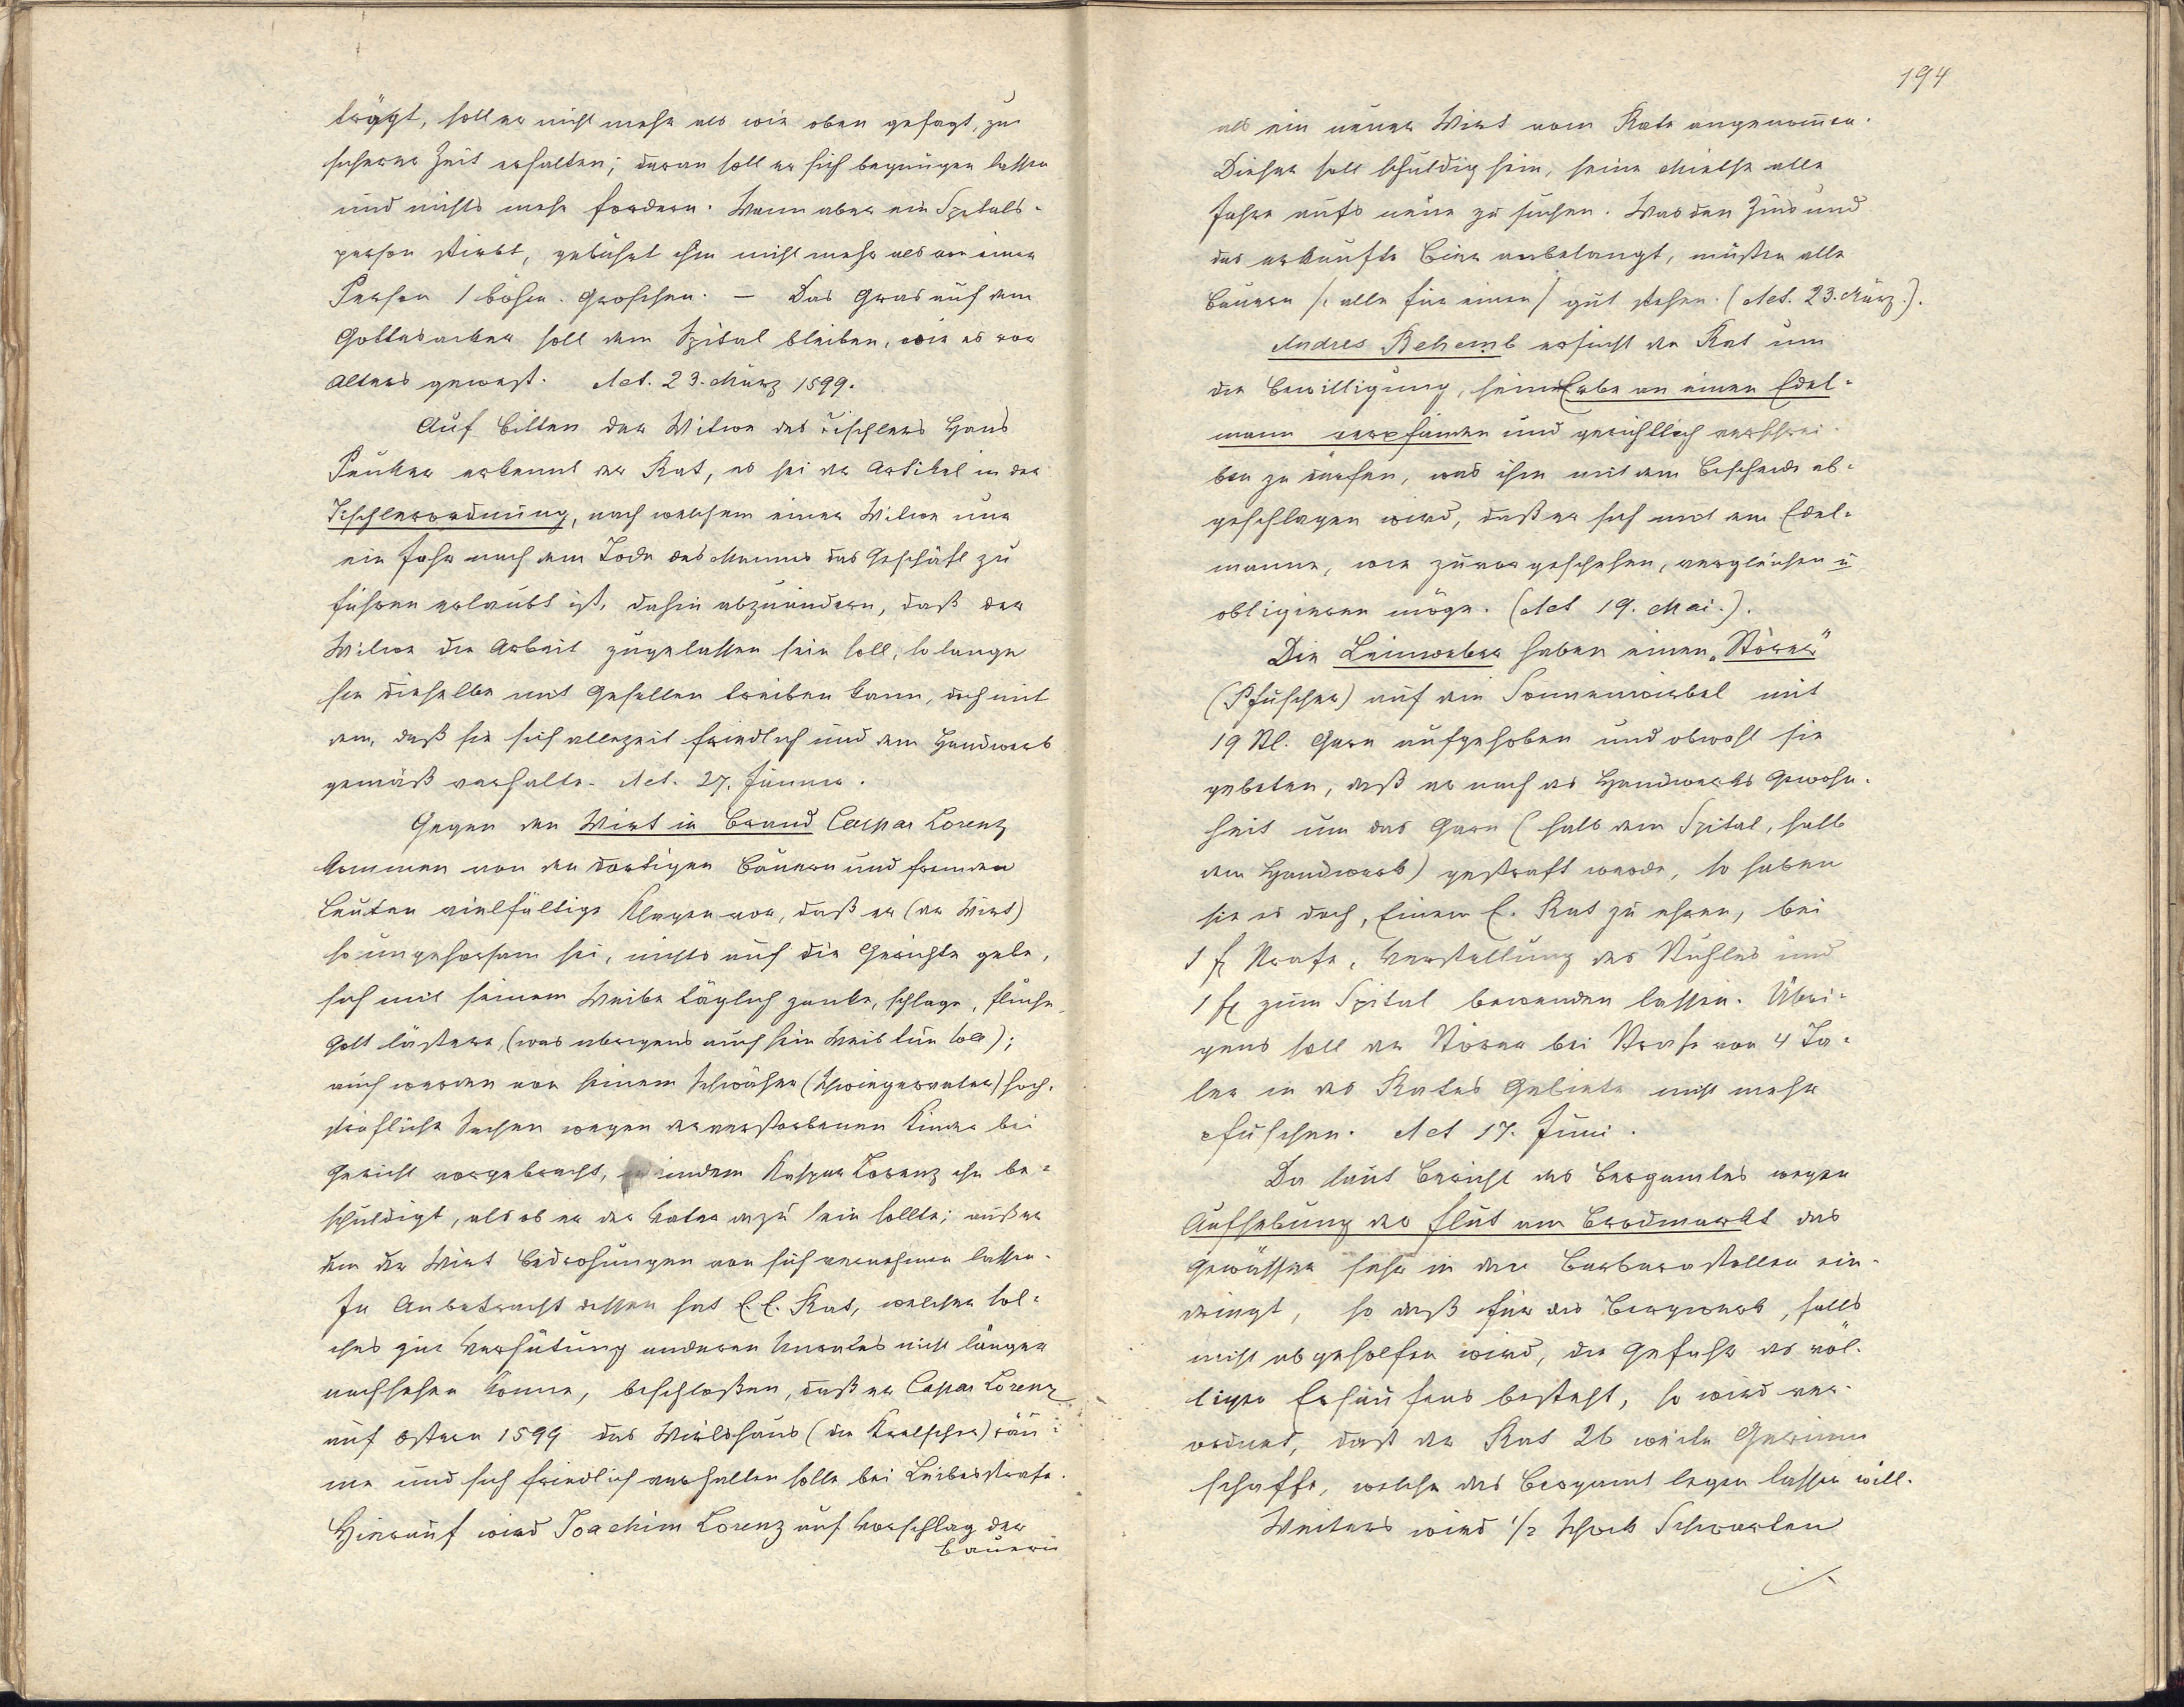 trägt, soll er nicht mehr als wie oben gesagt, zu
sicherer Zeit erhalten; daran soll er sich begnügen lassen
und nichts mehr fordern. Wenn aber ein Spitals-
person stirbt, gebührt ihm nicht mehr als von einer
Person 1 böhm. Groschen. — Das Gras auf dem
Gottesacker soll dem Spital bleiben, wie es vor
Alters gewest. Act. 23. März 1599.
Auf Bitten der Witwe des Tischlers Hans
Peuker erkennt der Rat, es sei der Artikel in der
Tischlerordnung, nach welchem einer Witwe nur
ein Jahr nach dem Tode des Mannes das Geschäft zu
führen erlaubt ist, dahin abzuändern, daß der
Witwe die Arbeit zugelassen sein soll, so lange
sie dieselbe mit Gesellen treiben kann, doch mit
dem, daß sie sich allezeit friedlich und dem Handwerk
gemäß verhalte. Act. 27. Jänner.
Gegen den Wirt in Brand Caspar Lorenz
kommen von den dortigen Bauern und fremden
Leuten vielfältige Klagen vor, daß er (der Wirt)
so ungehorsam sei, nichts auf die Gerichte gebe,
sich mit seinem Weibe täglich zanke, schlage, fluche,
Gott lästere, (was übrigens auch sein Weib tun soll);
auch werden von seinem Schwäher (Schwiegervater) hoch-
sträfliche Sachen wegen der verstorbenen Kinder bei
Gericht vorgebracht, indem Kaspar Lorenz ihn be-
schuldigt, als ob er der Vater dazu sein sollte; außer
dem der Wirt Bedrohungen von sich vernehmen lassen.
In Anbetracht dessen hat E. E. Rat, welcher sol-
ches zur Verhütung anderen Unrates nicht länger
nachsehen konnte, beschloßen, daß er Caspar Lorenz
auf Ostern 1599 das Wirtshaus (die Kretscher) räu-
me und sich friedlich verhalten solle bei Leibesstrafe.
Hierauf wird Joachim Lorenz auf Vorschlag der
Bauern
194
als ein neuer Wirt vom Rate angenom̅en.
Dieser soll schuldig sein, seine Miethe alle
Jahre aufs neue zu suchen. Was den Zins und
das erkaufte Bier anbelangt, müßen alle
Bauern /: alle für einen / gut stehen. (Act. 23. März.).
Andres Behemb ersucht den Rat um
die Bewilligung, sein Erbe an einen Edel-
mann verpfänden und gerichtlich verschrei-
ben zu dürfen, was ihm mit dem Bescheide ab-
geschlagen wird, daß er sich mit dem Edel-
manne, wie zuvor geschehen, vergleichen u
obligieren möge. (Act 19. Mai.).
Die Leinweber haben einen „Störer"
(Pfuscher) auf dem Sonnenwirbel mit
19 St. Garn aufgehoben und obwohl sie
gebeten, daß er nach des Handwerks Gewohn-
heit um das Garn (halb dem Spital, halb
dem Handwerk) gestraft werde, so haben
sie es doch, Einem E. Rat zu ehren, bei
1 fl Strafe, Verstellung des Stuhles und
1 fl zum Spital bewenden lassen. Übri-
gens soll der Störer bei Strafe von 4 Ta-
ler in des Rates Gebiete nicht mehr
pfuschen. Act 17. Juni.
Da laut Bericht des Bergamtes wegen
Aufhebung der Flut am Brodmarkt das
Gewässer sehr in den Barbarastollen ein-
dringt, so daß für das Bergwerk, falls
nicht abgeholfen wird, die Gefahr des völ-
ligen Ersaufens besteht, so wird ver-
ordnet, daß der Rat 26 weite Gerinne
schaffe, welche das Bergamt legen lassen will.
Weiters wird 1/2 Schock Schwarten